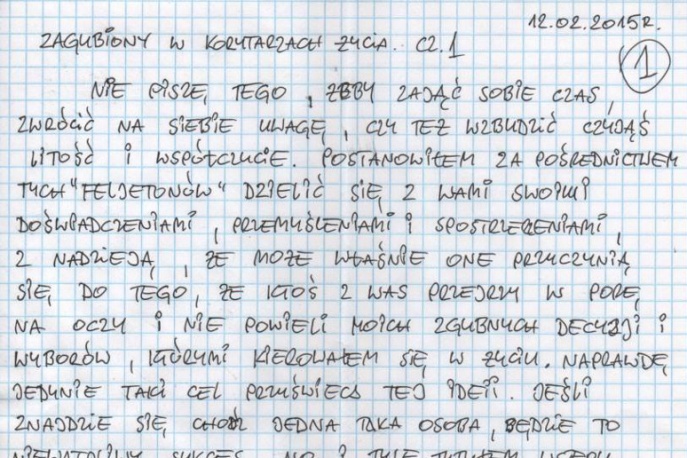 12.02.2015r.
ZAGUBIONY W KORYTARZACH ŻYCIA. CZ.1
1
NIE PISZĘ TEGO, ŻEBY ZAJĄĆ SOBIE CZAS,
ZWRÓCIĆ NA SIEBIE UWAGĘ, CZY TEŻ WZBUDZIĆ CZYJĄŚ
LITOŚĆ I WSPÓŁCZUCIE. POSTANOWIŁEM ZA POŚREDNICTWEM
TYCH "FELJETONÓW" DZIELIĆ SIĘ Z WAMI SWOIMI
DOŚWIADCZENIAMI, PRZEMYŚLENIAMI I SPOSTRZEŻENIAMI,
Z NADZIEJĄ, ŻE MOŻE WŁAŚNIE ONE PRZYCZYNIĄ
SIĘ DO TEGO, ŻE KTOŚ Z WAS PRZEJRZY W PORĘ
NA OCZY I NIE POWIELI MOICH ZGUBNYCH DECYZJI I
WYBORÓW, KTÓRYMI KIEROWAŁEM SIĘ W ŻYCIU. NAPRAWDĘ
JEDYNIE TAKI CEL PRZYŚWIECA TEJ IDEII. JEŚLI
ZNAJDZIE SIĘ CHOĆ JEDNA TAKA OSOBA, BĘDZIE TO
SUKCES